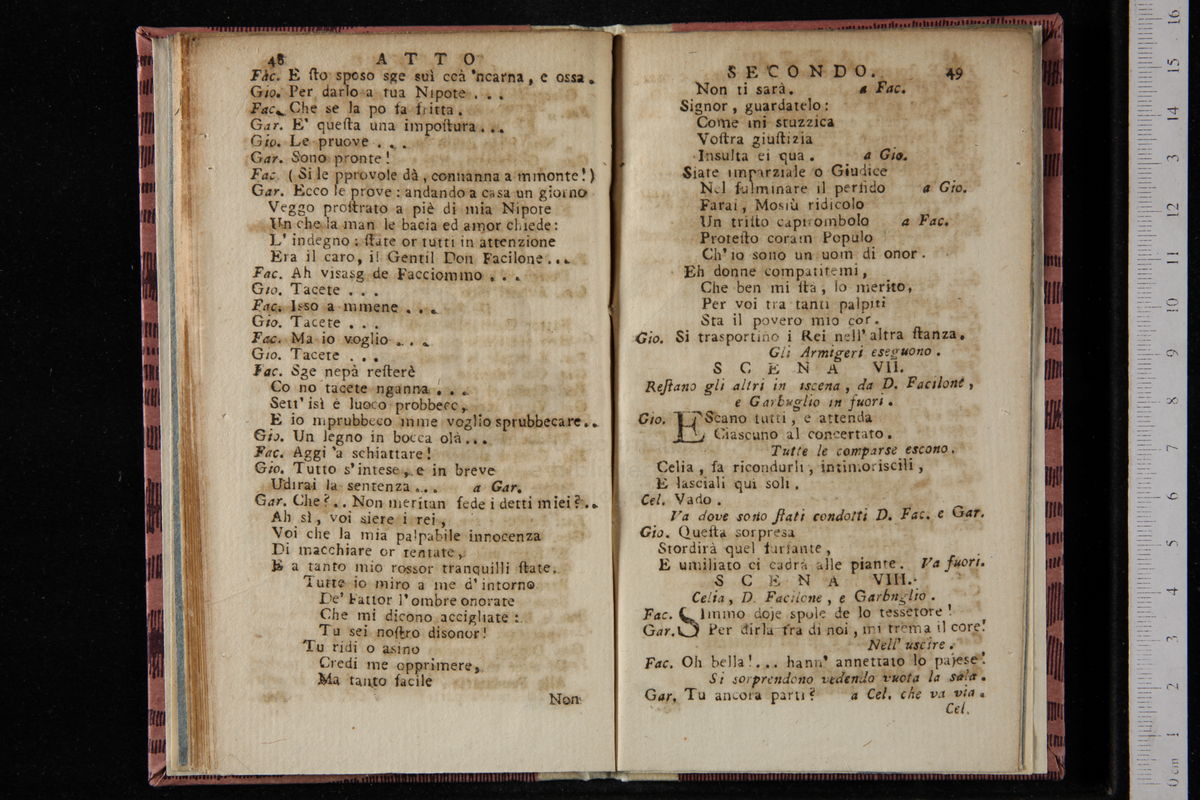 48 ATTO
Fac. E ſto sposo sge sui ccà 'ncarna, e ossa.
Gio. Per darlo a tua Nipote . . .
Fac. Che se la po fa fritta.
Gar. E' queſta una impoſtura...
Gio. Le pruove . . .
Gar. Sono pronte!
Fac. (Si le pprovole dà, connanna a mmonte!)
Gar. Ecco le prove: andando a casa un giorno
Veggo proſtrato a piè di mia Nipote
Un che la man le bacia ed amor chiede:
L' indegno: ſtate or tutti in attenzione
Era il caro, il Gentil Don Facilone...
Fac. Ah visasg de Facciommo . . .
Gio. Tacete . . .
Fac. Isso a mmene . . .
Gio. Tacete . . .
Fac. Ma io voglio . . .
Gio. Tacete . . .
Fac. Sge nepà reſterè
Co no tacete nganna . . .
Sett' isi è luoco probbecc,
E io mprubbeco mme voglio sprubbecare..
Gio. Un legno in bocca olà...
Fac. Aggi 'a schiattare!
Gio. Tutto s' intese, e in breve
Udirai la sentenza ... a Gar.
Gar. Che?.. Non meritan fede i detti miei?..
Ah sì, voi siete i rei,
Voi che la mia palpabile innocenza
Di macchiare or tentate,
E a tanto mio rossor tranquilli ſtate.
Tutte io miro a me d' intorno
De' Fattor l' ombre onorate
Che mi dicono accigliate:
Tu sei noſtro disonor!
Tu ridi o asino
Credi me opprimere,
Ma tanto facile
Non
SECONDO. 49
Non ti sarà. a Fac.
Signor, guardatelo:
Come mi stuzzica
Voſtra giuſtizia
Insulta ei qua. a Gio.
Siate imparziale o Giudice
Nel fulminare il perfido a Gio.
Farai, Mosiù ridicolo
Un triſto capitombolo a Fac.
Proteſto coram Populo
Ch' io sono un uom di onor.
Eh donne compatitemi,
Che ben mi ſtà, lo merito,
Per voi tra tanti palpiti
Sta il povero mio cor.
Gio. Si trasportino i Rei nell' altra ſtanza.
Gli Armigeri eseguono.
SCENA VII.
Reſtano gli altri in iscena, da D. Facilone,
e Garbuglio in fuori.
Gio. EScano tutti, e attenda
Ciascuno al concertato.
Tutte le comparse escono.
Celia, fa ricondurli, intimoriscili,
E lasciali qui soli.
Cel. Vado.
Va dove sono ſtati condotti D. Fac. e Gar.
Gio. Queſta sorpresa
Stordirà quel furfante,
E umiliato ci cadrà alle piante. Va fuori.
SCENA VIII.
Celia, D. Facilone, e Garbuglio.
Fac. SImmo doje spole de lo tessetore!
Gar. Per dirla fra di noi, mi trema il core!
Nell' uscire.
Fac. Oh bella!... hann' annettato lo pajese!
Si sorprendono vedendo vuota la sala.
Gar. Tu ancora parti? a Cel. che va via.
Cel.